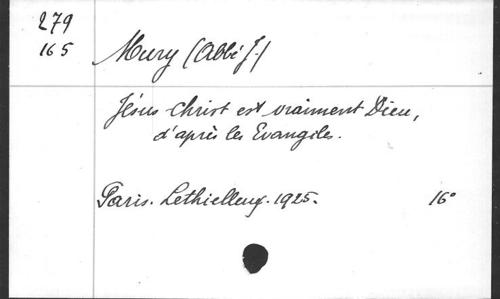 279
165
Mury (Abbé J.)
Jésus-Christ est vraiment Dieu,
d'après les Evangiles.
Paris. Lethielleux. 1925. 16°